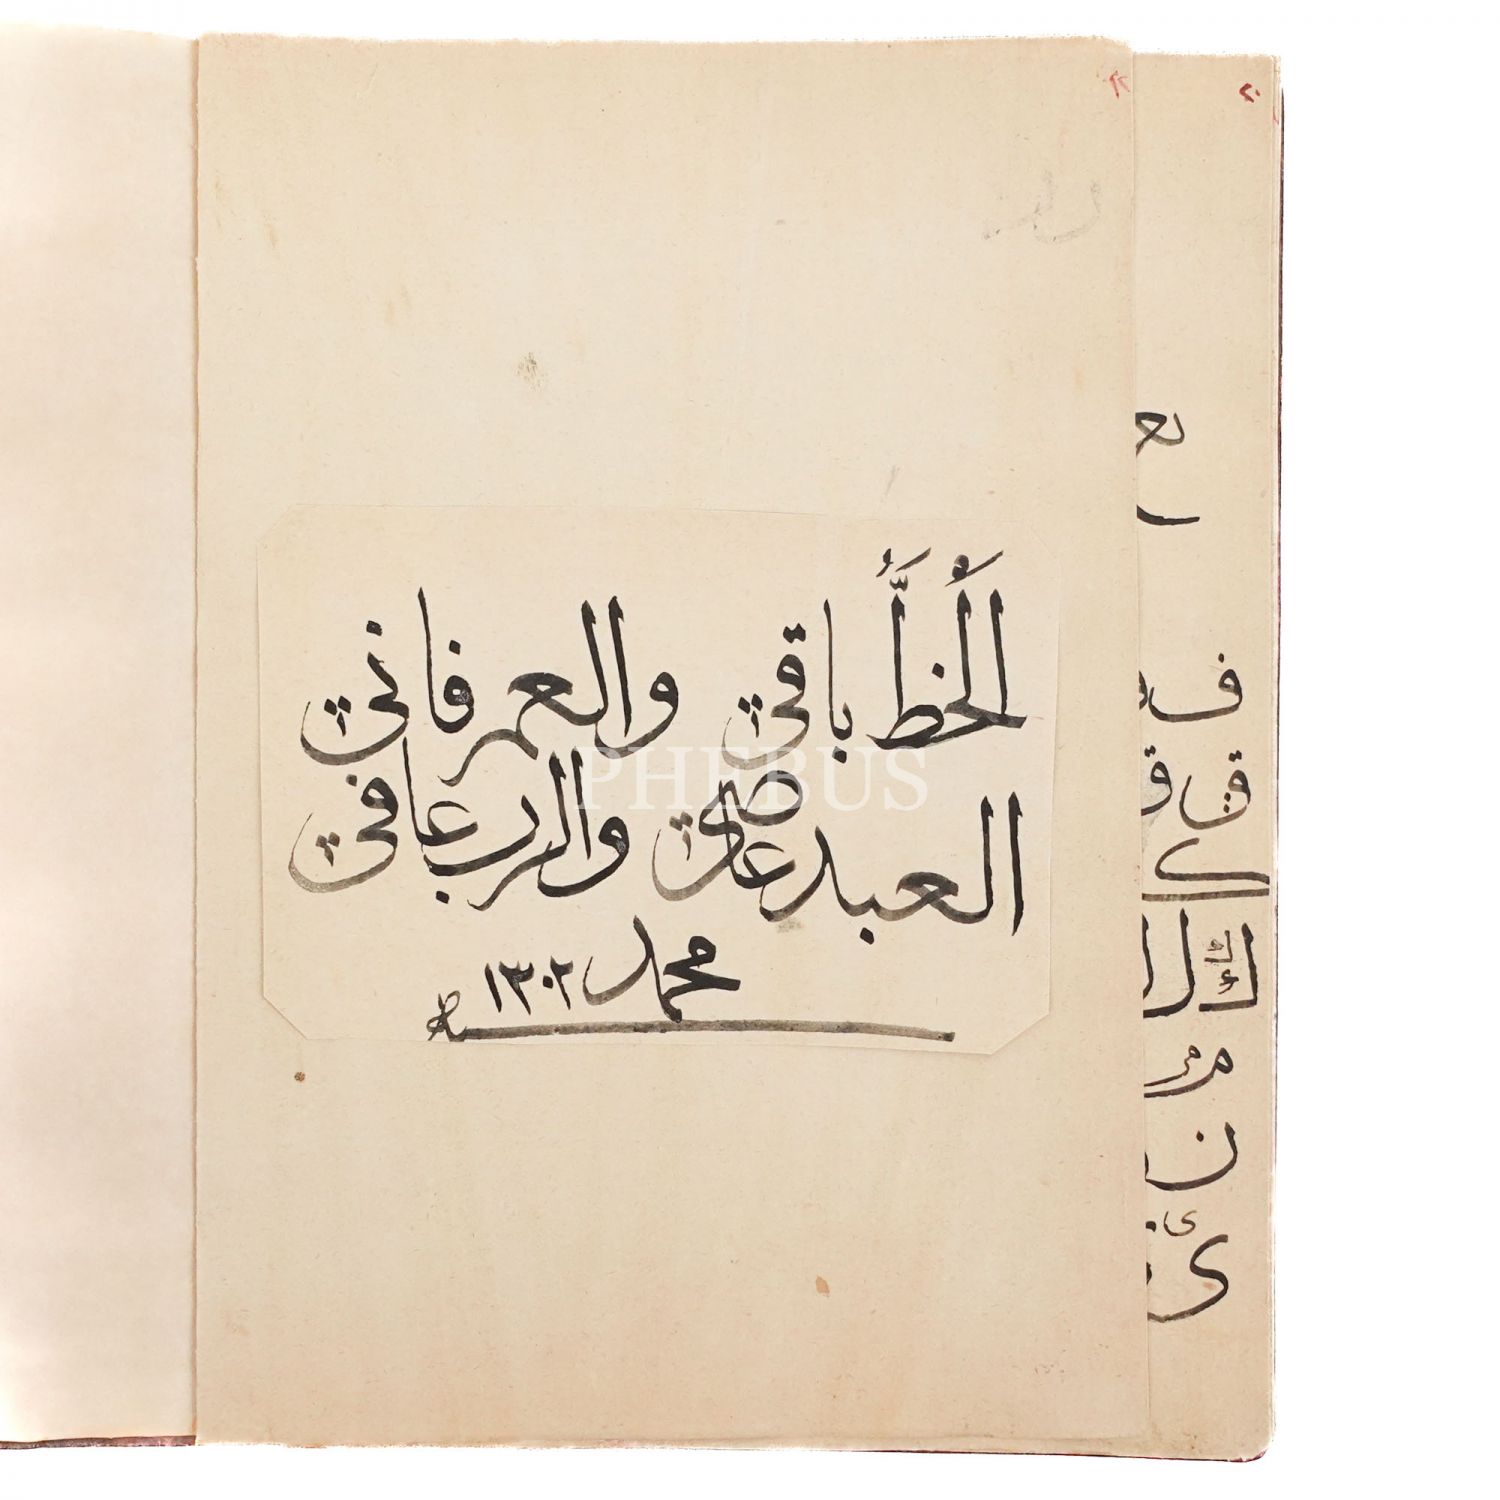 اَلْخطَّ باقي والعمر فاني
العبد عاصي والرب عافي
محمد ١٣٠٢
PHEBUS
٢٠
ن